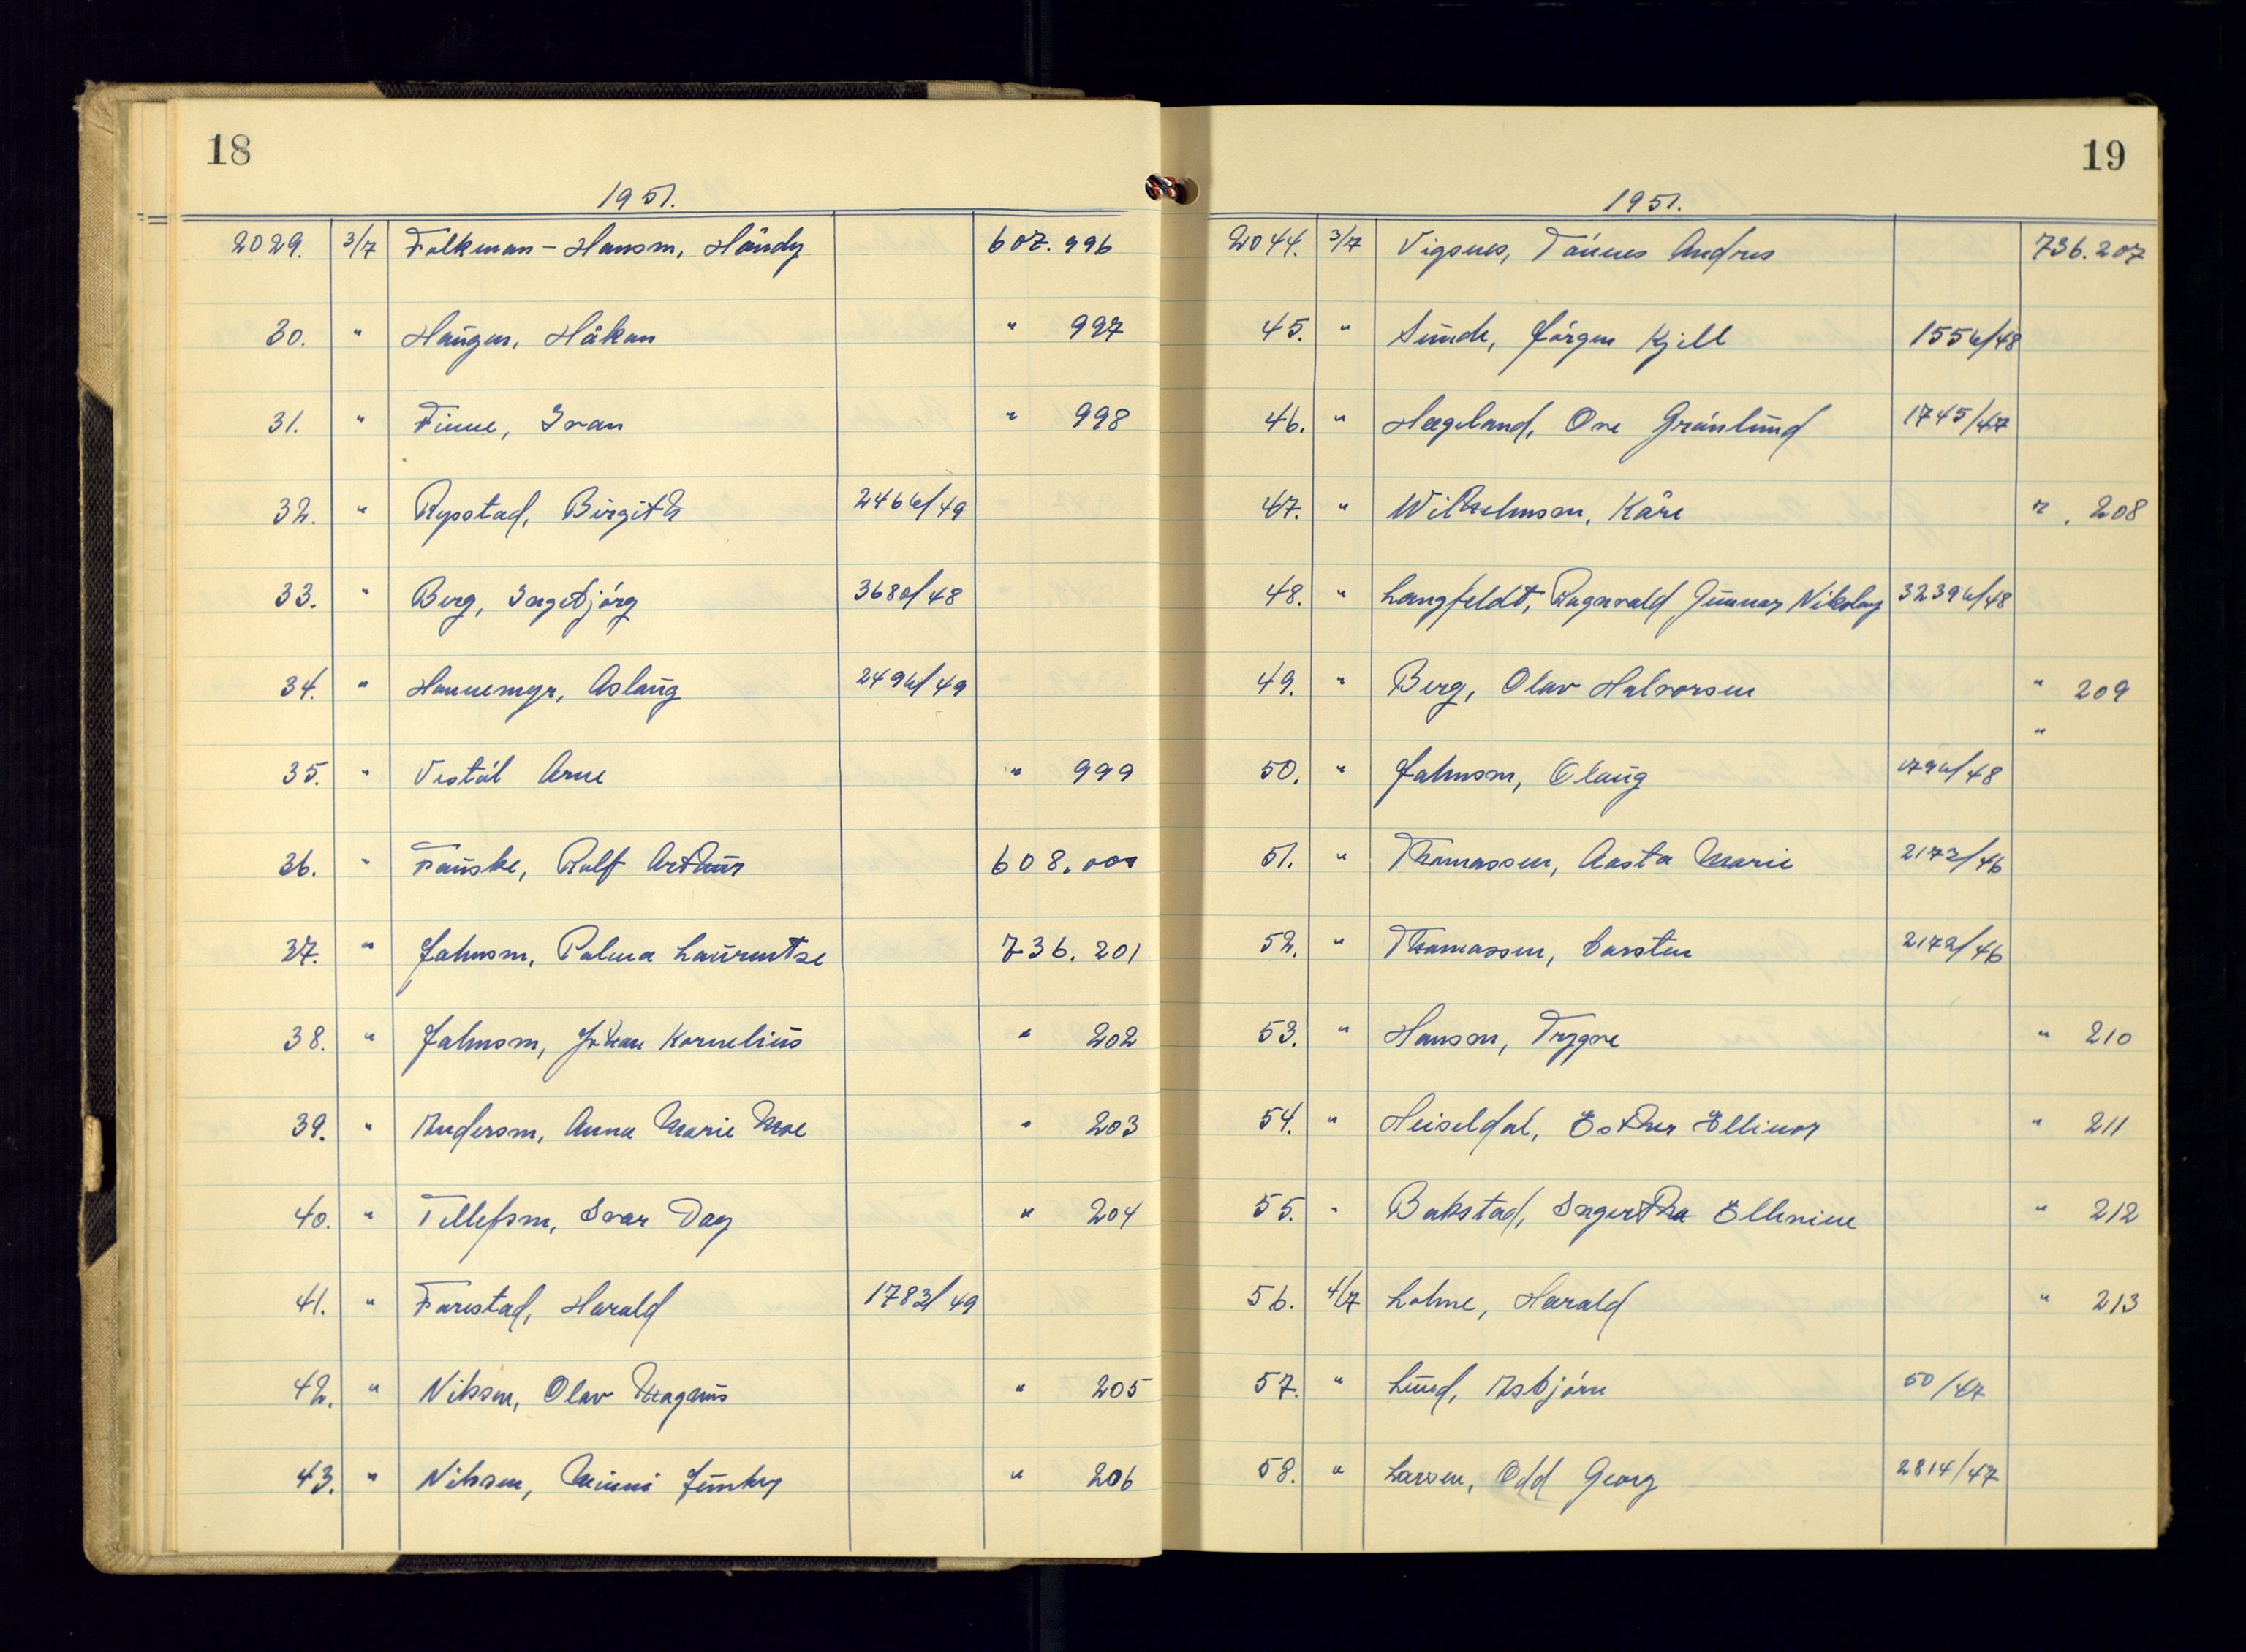 18
1951.
2029. 3/7 Folkman-Hansen, Händy 607.996
30. " Haugen, Håkon " 997
31. " Finne, Ivan " 998
32. " Rypstad, Birgith 2466/49
33. " Berg, Ingebjørg 3680/48
34. " Hannemyr, Aslaug 2496/49
35. " Vestøl Arne " 999
36. " Fauske, Rolf Arthur 608.000
37. " Johnsen, Palma Laurentze 736.201
38. " Johnsen, Johan Kornelius " 202
39. " Andersen, Anna Marie Moe " 203
40. " Tellefsen, Ivar Dag " 204
41. " Farestad, Harald 1783/49
42. " Nilssen, Olav Magnus " 205
43. " Nilssen, Minni " 206
19
1951.
2044. 3/7 Vigsnes, Tønnes Andres 736.207
45. " Sunde, Jørgen Kjell 1556/48
46. " Hægeland, Ove Grønlund 1745/47
47. " Wilhelmsen, Kåre " . 208
48. " Langfeldt, Ragnvald Gunnar Nikolay 3239/48
49. " Berg, Olav Halvorsen " 209
"
50. " Johnsen, Olaug 179/48
51. " Thomassen, Aasta Marie 2173/46
52. " Thomassen, Carsten 2172/46
53. " Hansen, Trygve " 210
54. " Heiseldal, Esther Ellinor " 211
55. " Bakstad, Ingertha Ellenine " 212
56. 4/7 Lohne, Harald " 213
57. " Lund, Asbjørn 50/47
58. " Larsen, Odd Georg 2814/47